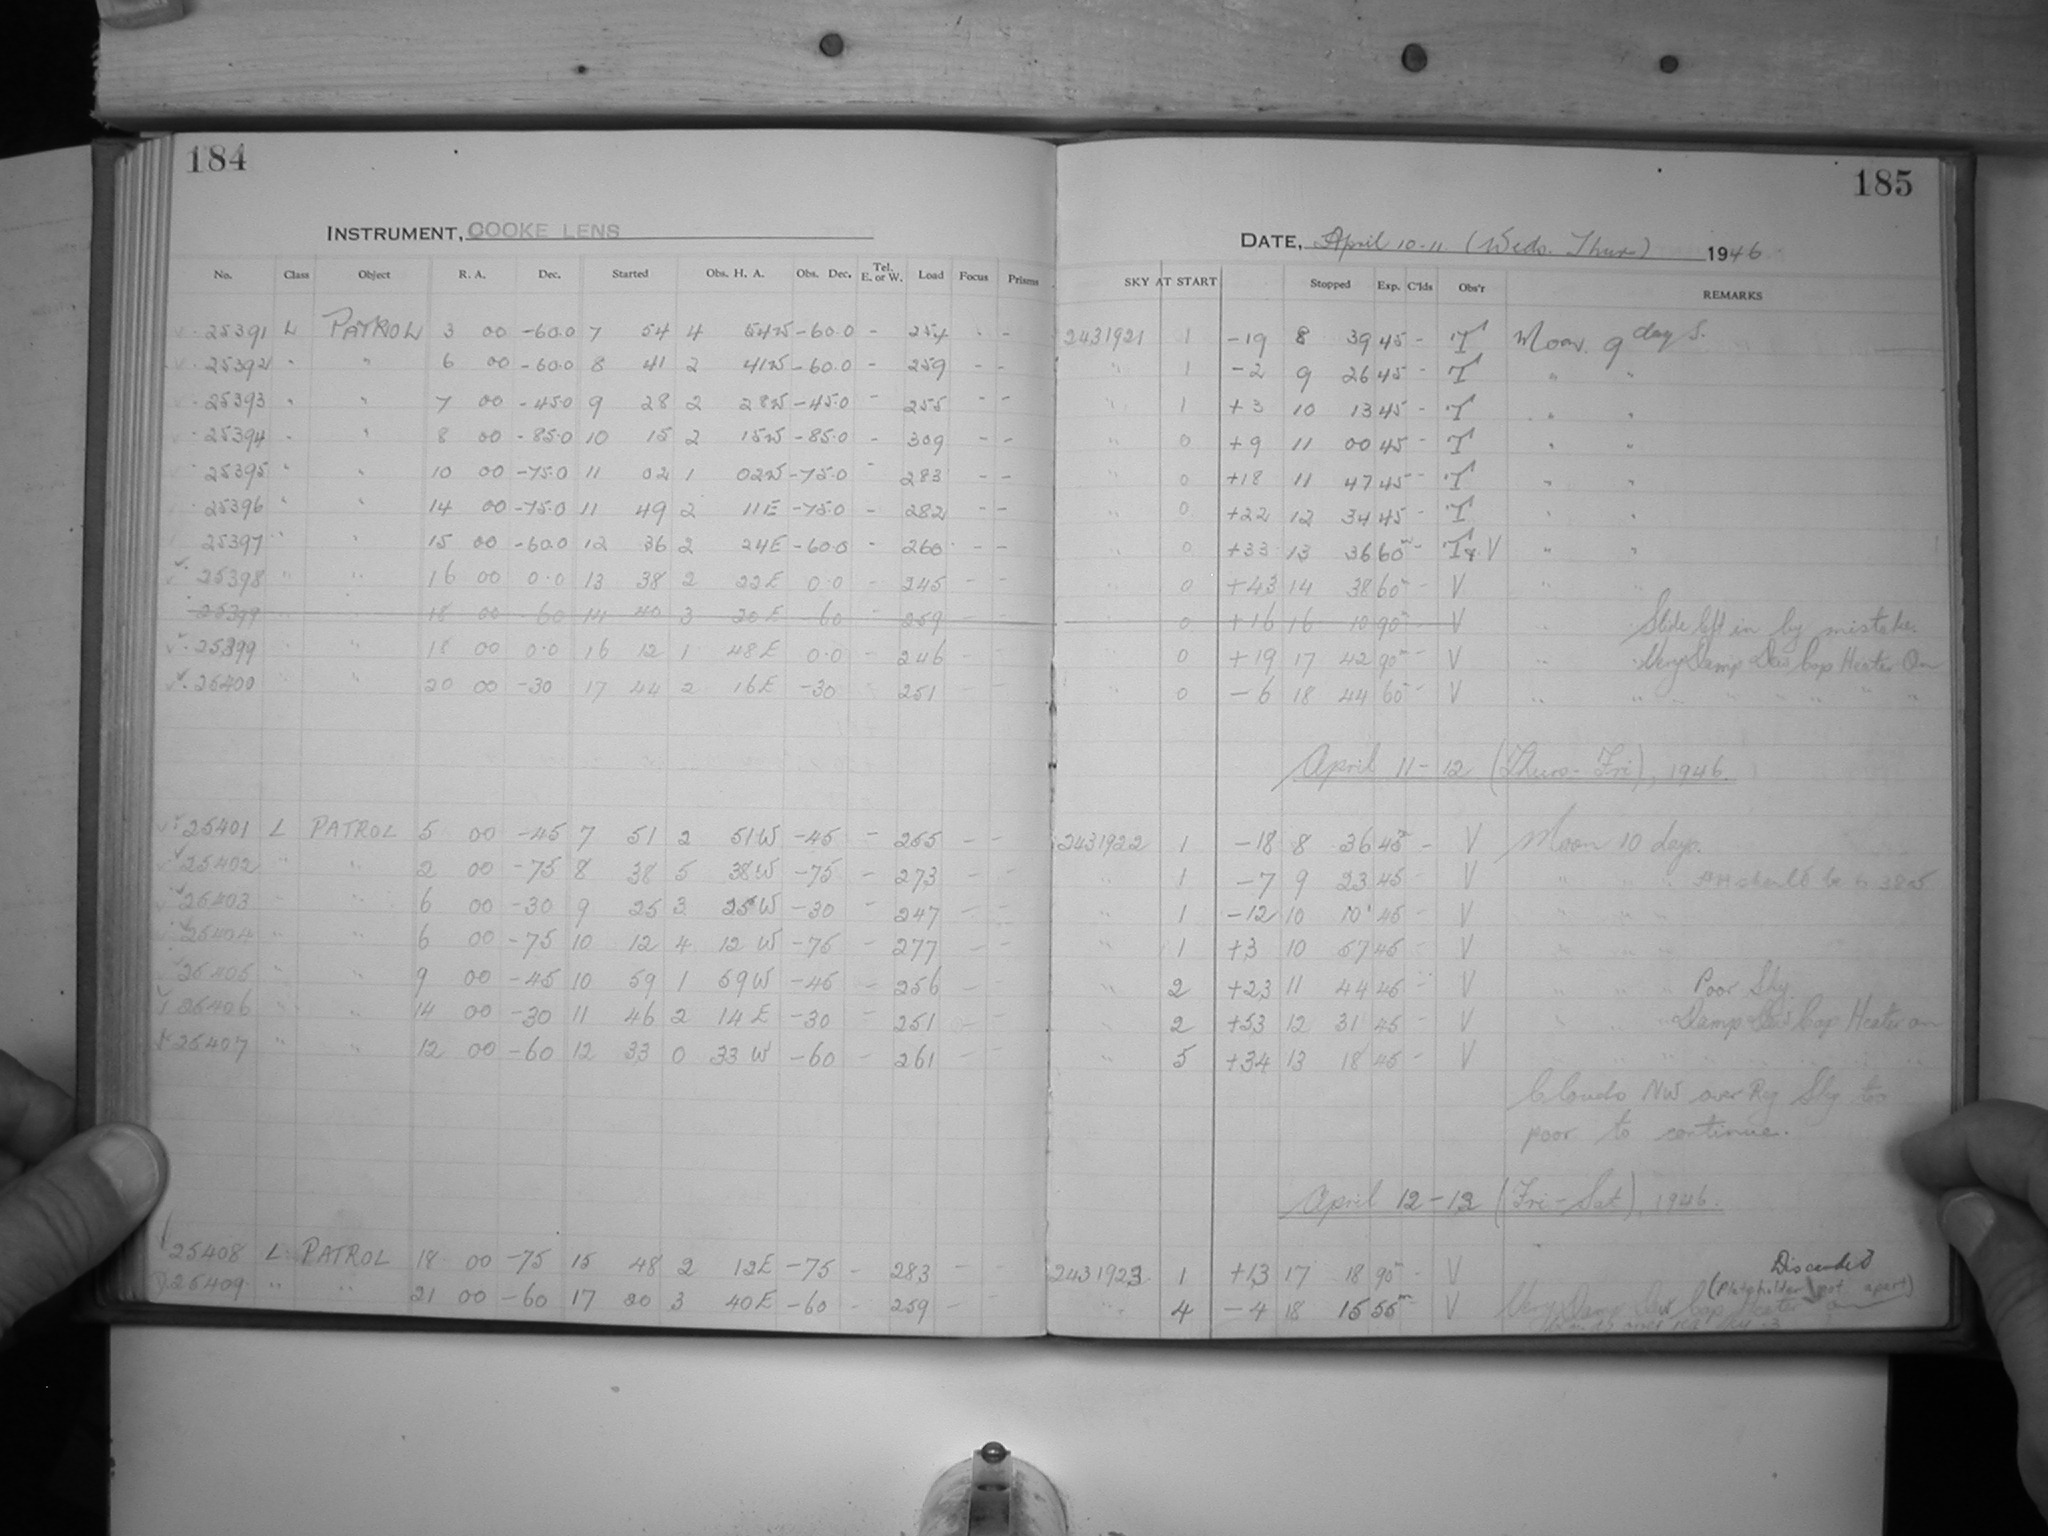 184
INSTRUMENT, COOKE LENS
No. Class Object R. A. Dec. Started Obs. H. A. Obs. Dec. Tel. E. or W. Load Focus Prisms
25391 L PATROL 3 00 -60.0 7 54 4 54W -60.0 - 254 - -
25392 " " 6 00 -60.0 8 41 2 41W -60.0 - 259 - -
25393 " " 7 00 -45.0 9 28 2 28W -45.0 - 255 - -
25394 " " 8 00 -85.0 10 15 2 15W -85.0 - 309 - -
25395 " " 10 00 -75.0 11 02 1 02W -75.0 - 283 - -
25396 " " 14 00 -75.0 11 49 2 11E -75.0 - 282 - -
25397 " " 15 00 -60.0 12 36 2 24E -60.0 - 260 - -
25398 " " 16 00 0.0 13 38 2 22E 0.0 - 245 - -
25399 " " 18 00 -60 14 40 3 20E -60 - 259 - -
25399 " " 18 00 0.0 16 12 1 48E 0.0 - 246 - -
25400 " " 20 00 -30 17 44 2 16E -30 - 251 - -
25401 L PATROL 5 00 -45 7 51 2 51W -45 - 255 - -
25402 " " 2 00 -75 8 38 5 38W -75 - 273 - -
25403 " " 6 00 -30 9 25 3 25W -30 - 247 - -
25404 " " 6 00 -75 10 12 4 12W -75 - 277 - -
25405 " " 9 00 -45 10 59 1 59W -45 - 256 - -
25406 " " 14 00 -30 11 46 2 14E -30 - 251 - -
25407 " " 12 00 -60 12 33 0 33W -60 - 261 - -
25408 L PATROL 18 00 -75 15 48 2 12E -75 - 283 - -
25409 " " 21 00 -60 17 20 3 40E -60 - 259 - -
185
DATE, April 10-11 (Weds. Thur) 1946
SKY AT START Stopped Exp. C'lds Obs'r REMARKS
2431921 1 -19 8 39 45 - T Moon 9 days.
" 1 -2 9 26 45 - T " "
" 1 +3 10 13 45 - T " "
" 0 +9 11 00 45 - T " "
" 0 +18 11 47 45 - T " "
" 0 +22 12 34 45 - T " "
" 0 +33 13 36 60m - T & V " "
" 0 +43 14 38 60m - V " "
" 0 +16 16 10 90m - V " Slide left in by mistake.
" 0 +19 17 42 90m - V " Very Damp Dew Cap Heater On
" 0 -6 18 44 60m - V " " " " " " "
April 11-12 (Thurs-Fri), 1946.
2431922 1 -18 8 36 45m - V Moon 10 days.
" 1 -7 9 23 45 - V " " " HA should be
" 1 -12 10 10 45 - V " "
" 1 +3 10 57 45 - V " "
" 2 +23 11 44 45 - V " " Poor Sky
" 2 +53 12 31 45 - V " " Damp Dew Cap Heater on
" 5 +34 13 18 45 - V " " " " " " "
Clouds NW over Rg Sky too
poor to continue.
April 12-13 (Fri-Sat), 1946.
2431923 1 +13 17 18 90m - V Discarded
(Plateholder got apart)
" 4 -4 18 15 55m - V Very Damp Dew Cap Heater on